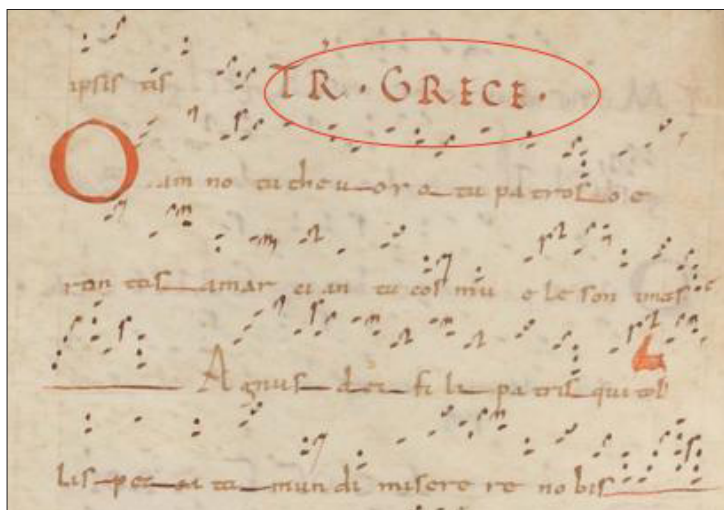 ipsis tis TR · GRECE ·
O am no tu theu or o tu pa tros o e
ron tas amar ci an tu cos mu e le son imas
Agnus dei fi li pa tris qui tol
lis pec ca ta mun di misere re no bis